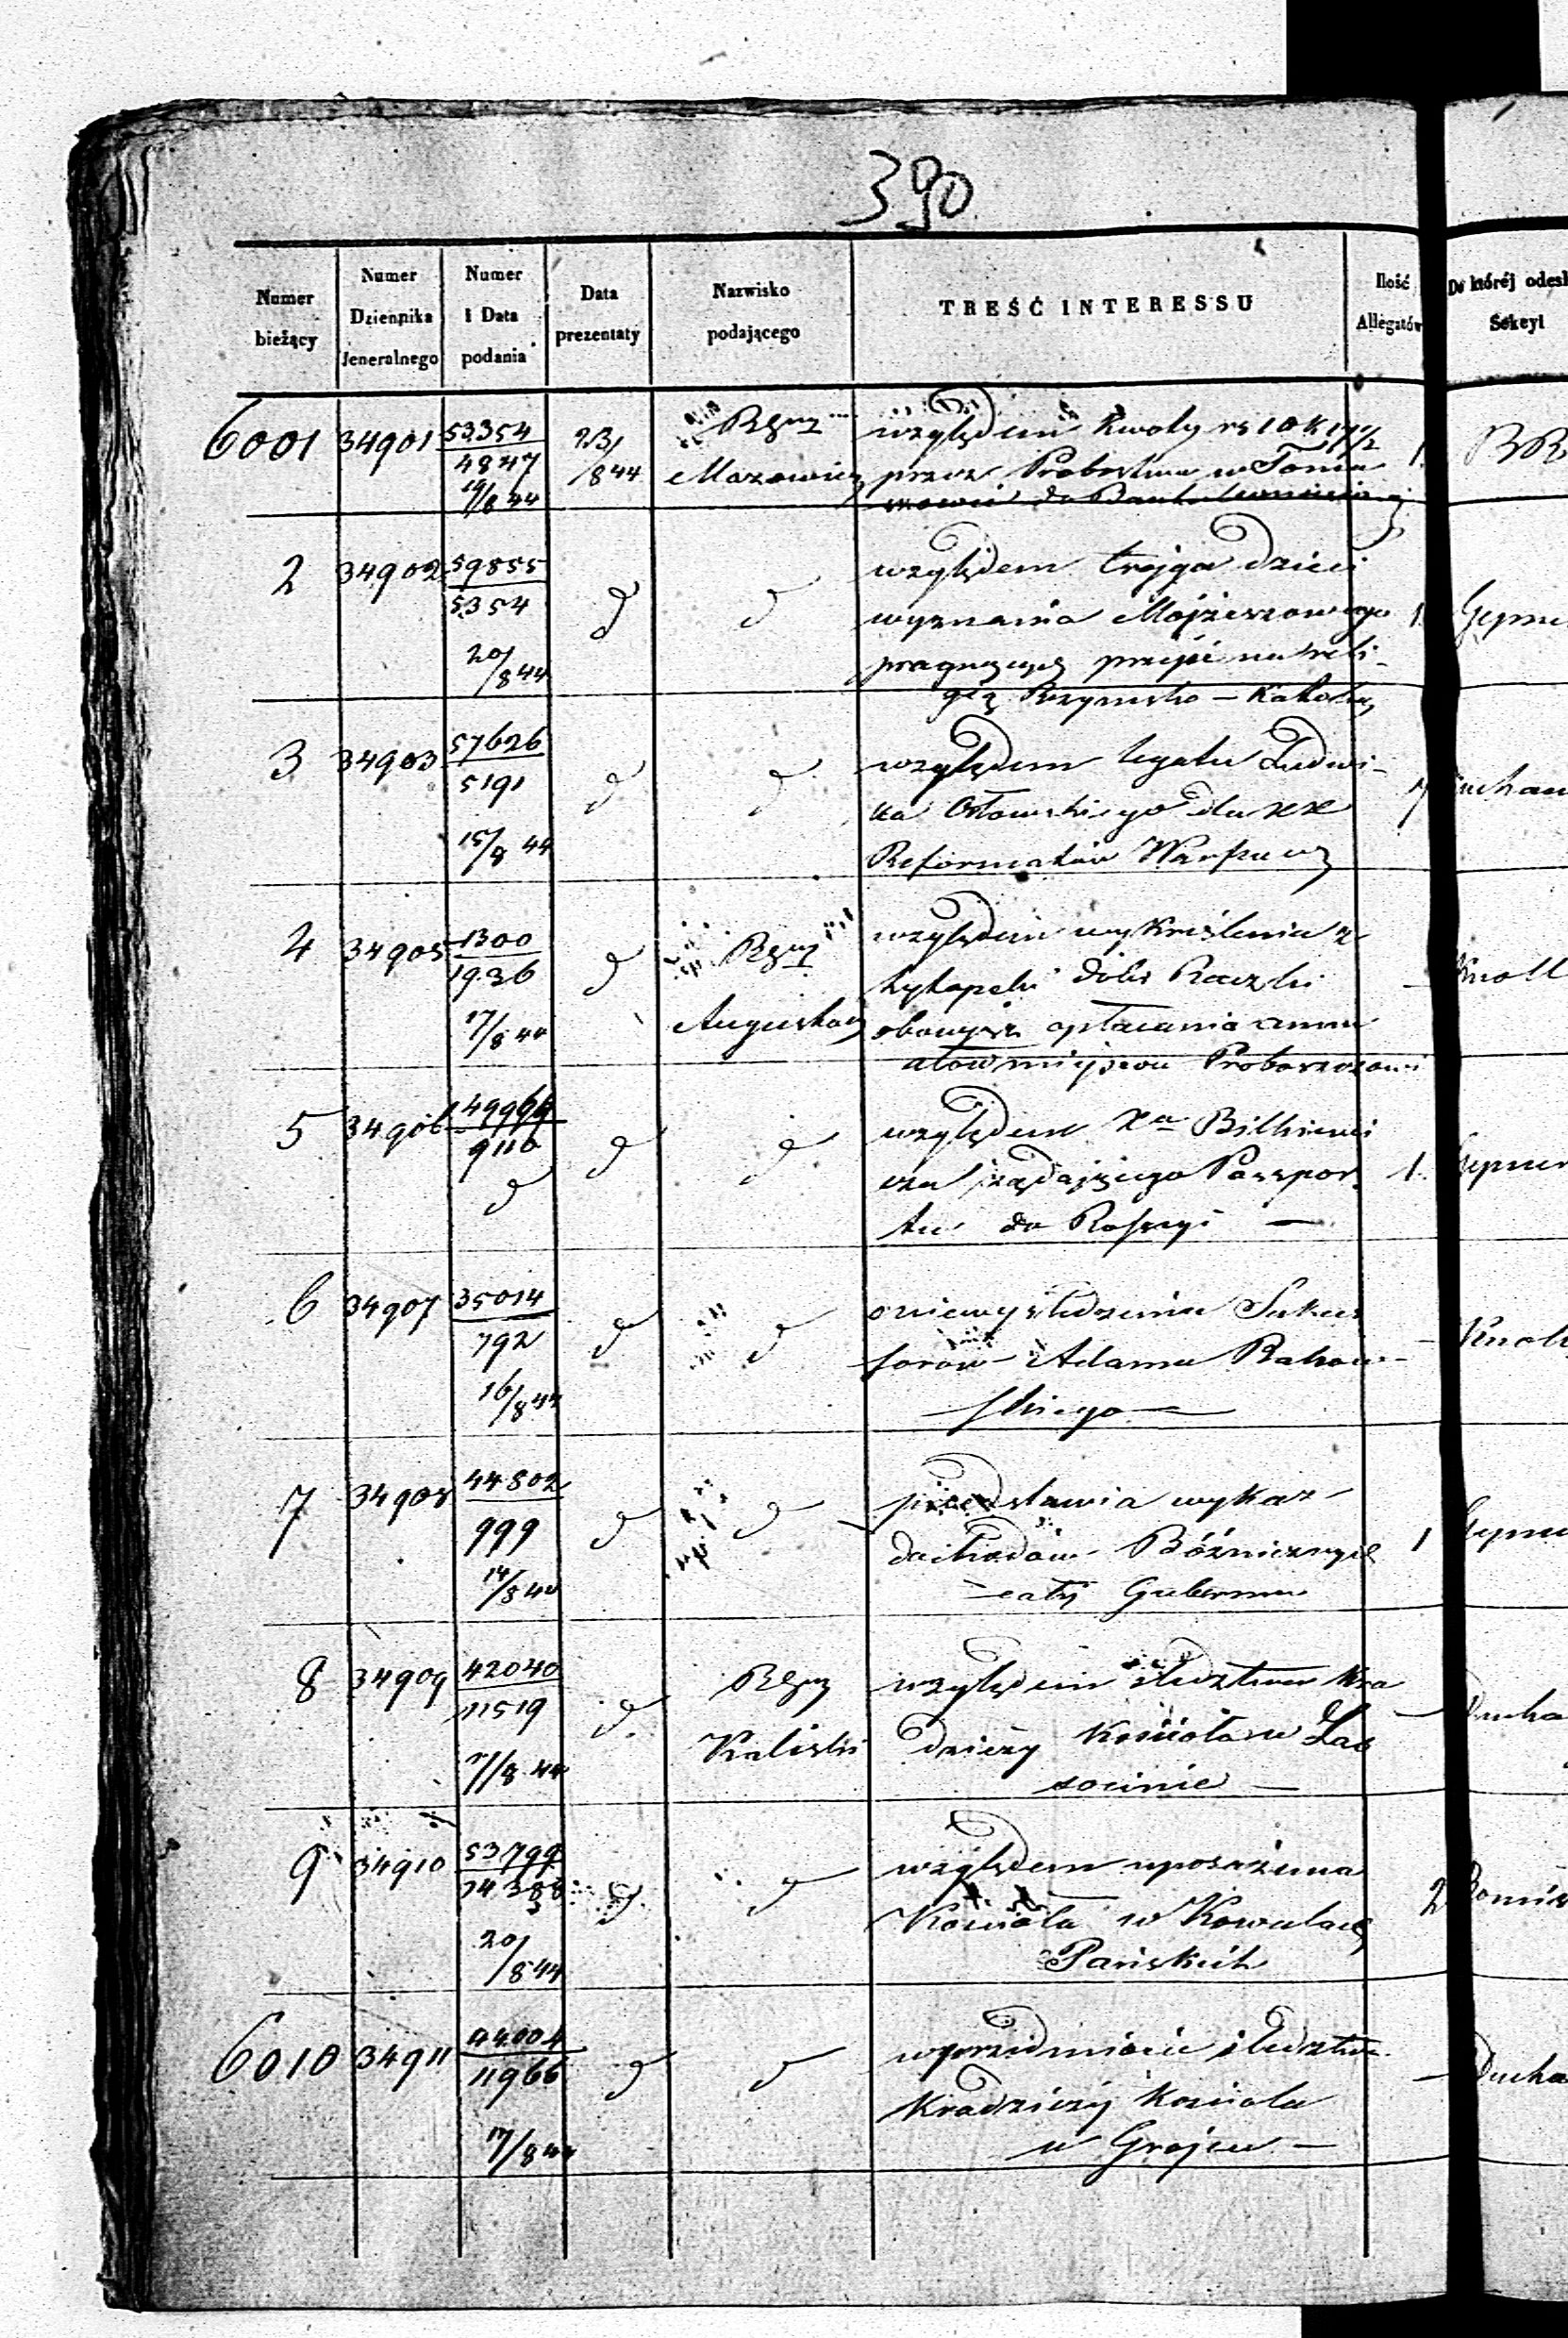 390
Numer bieżący | Numer Dziennika Jeneralnego | Numer i Data podania | Data prezentaty | Nazwisko podającego | TREŚĆ INTERESSU | Ilość Allegatów | Do któréj odesł Sekcyi
6001 | 34901 | 53354 / 4847 19/8 44 | 23/8 44 | Rząd Mazowiec | względem kwoty rs 10 k 17 1/2
przez Probostwo w Toma
szowie do Banku | 1. | BB
2 | 34902 | 59855 / 5354 20/8 44 | d | d | względem trojga dzieci
wyznania Mojżeszowego
pragnących przejść na reli-
gią Rzymsko-Katolic | 1. | Gepne
3 | 34903 | 57626 / 5191 15/8 44 | d | d | względem legatu Ludwi-
ka Ostowskiego dla xx
Reformatów Warszaw | Ducha
4 | 34905 | 1300 / 1936 17/8 44 | d | Rząd Augustow | względem wykreślenia z
hypoteki dóbr Raczki
obowiązk opłacania annu
atów miejscow Proboszczowi | - | Knoll
5 | 34906 | 49966 / 9116 d | d | d | względem Xa Bilkiewi
cza żądającego Passpor
tu do Rossyi — | 1. | Gepner
6 | 34907 | 35014 / 792 16/8 44 | d | d | o niewyśledzeniu Sukces
sorów Adama Rakow-
skiego — | - | Knoll
7 | 34908 | 44802 / 999 14/8 44 | d | d | przedstawia wykaz
dochodów Bóżnicznych
całej Gubernii | 1 | Gepne
8 | 34909 | 42040 / 11519 17/8 44 | d. | Rząd Kaliski | względem śledztwa kra
dzieży kościoła w Las
socinie — | - | Ducha
9 | 34910 | 53799 / 14388 20/8 44 | d | d | względem uposażenia
Kościoła w Kowalach
Pańskich | 2
6010 | 34911 | 44004 / 11966 17/8 44 | d | d | w przedmiocie śledztwa
kradzieży kościoła
w Grojcu — | - | Ducha